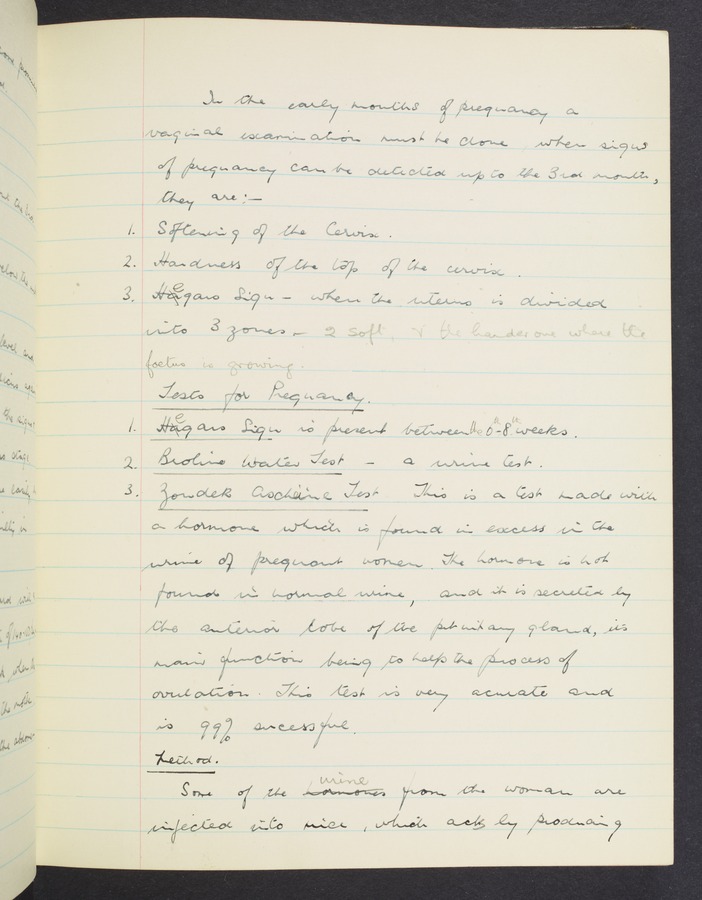 In the early months of pregnancy a
vaginal examination must be done, when signs
of pregnancy can be detected up to the 3rd month,
they are :-
1. Softening of the Cervix.
2. Hardness of the top of the cervix.
3. Hegars Sign - when the uterus is divided
into 3 zones - 2 soft, & the harder one where the
foetus is growing.
Tests for Pregnancy.
1. Hegars Sign is present between the 6th-8th weeks.
2. Broline Water Test - a urine test.
3. Zondek Ascheine Test This is a test made with
a hormone which is found in excess in the
urine of pregnant women. The hormone is not
found in normal urine, and it is secreted by
the anterior lobe of the pituitary gland, its
main function being to help the process of
ovulation. This test is very accurate and
is 99% sucessful.
Method.
Some of the urine from the woman are
injected into mice, which acts by producing